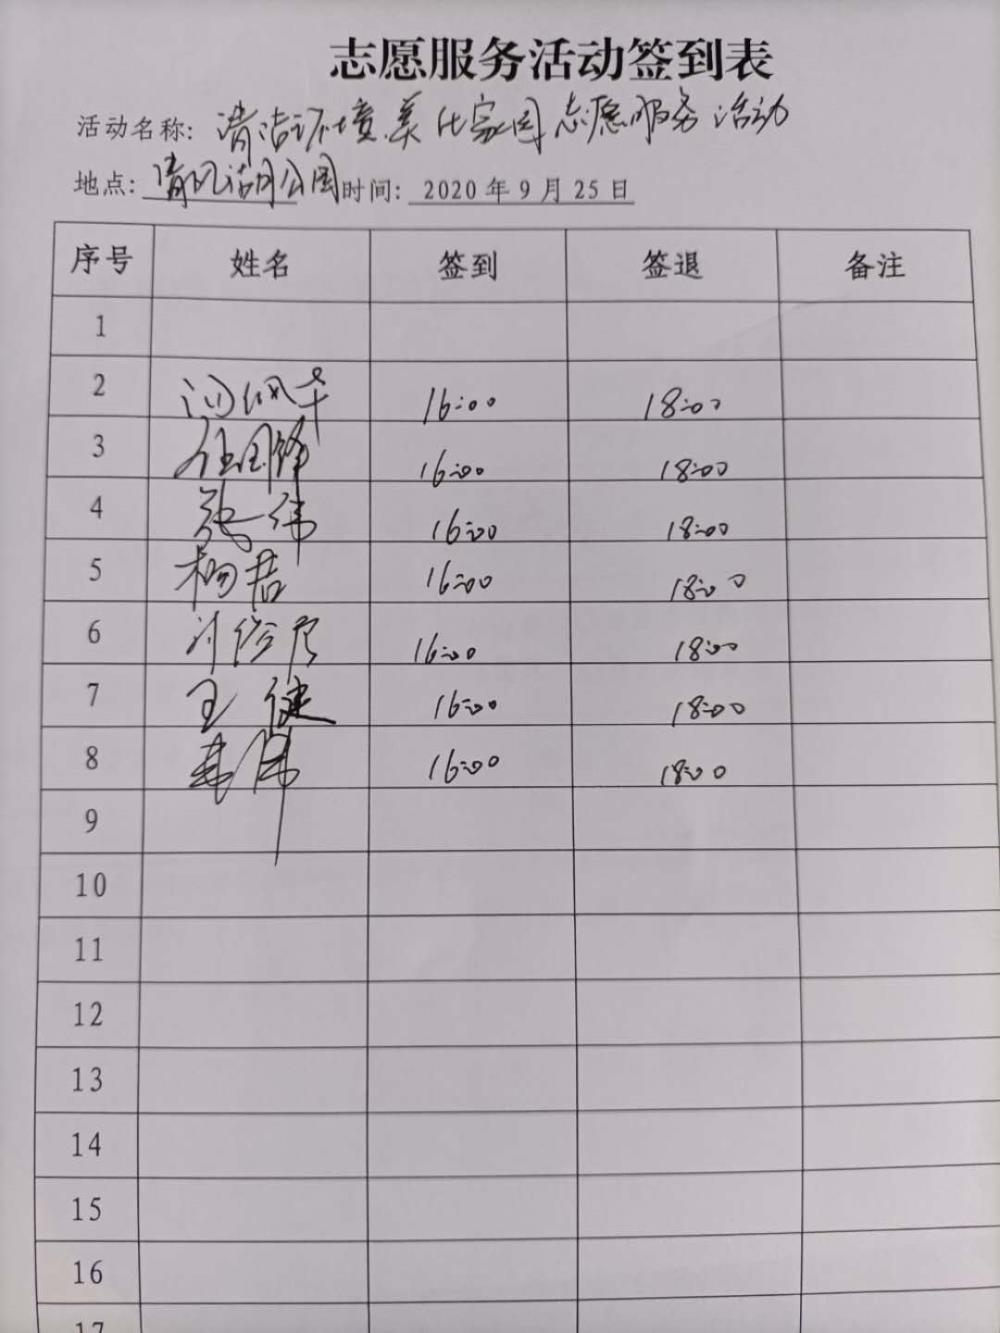 志愿服务活动签到表
活动名称: 清洁环境美化家园志愿服务活动
地点: 清风湖公园 时间: 2020年9月25日
序号 姓名 签到 签退 备注
1
2 16:00 18:00
3 任国锋 16:00 18:00
4 张伟 16:00 18:00
5 杨君 16:00 18:00
6 16:00 18:00
7 王健 16:00 18:00
8 16:00 18:00
9
10
11
12
13
14
15
16
17